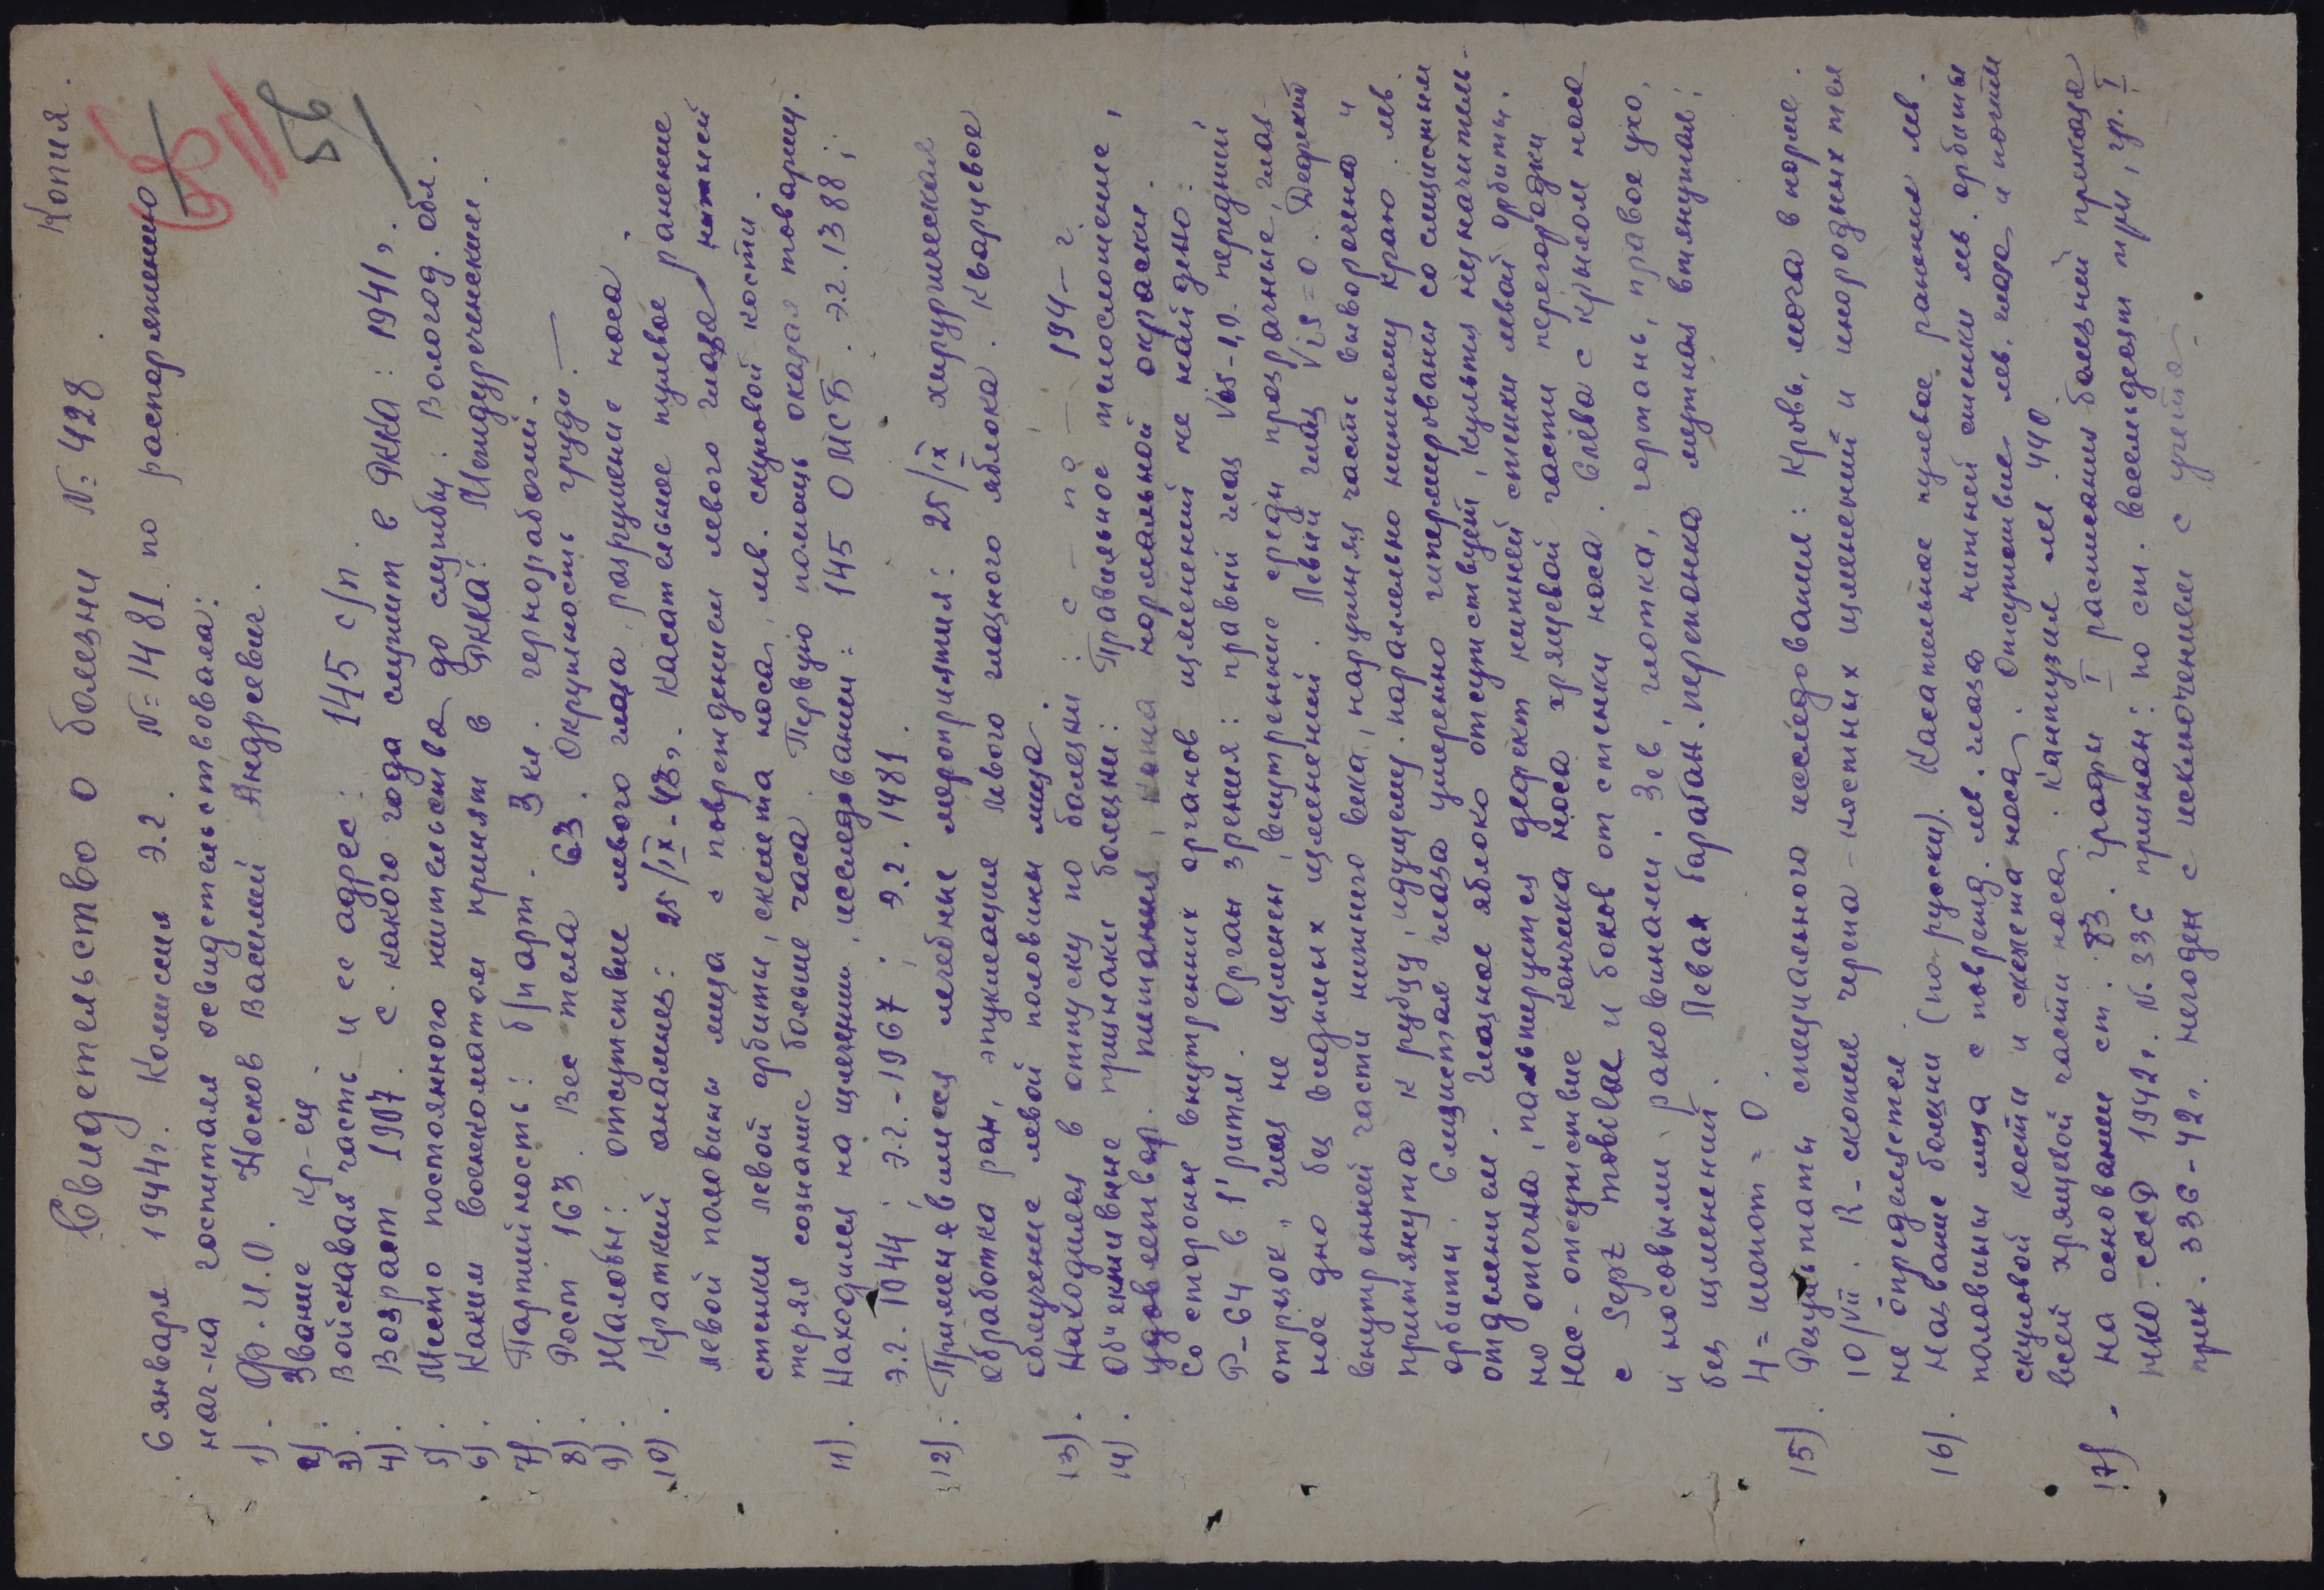 Копия.
Свидетельство о болезни №: 428.
56
6 января 1944г. Комиссия э.г. №=1481 по распоряжению
нач-ка госпиталя освидетельствовала:
1). Ф.И.О. Носков Василий Андреевич.
2). Звание кр-ец.
3). Войсковая часть и ее адрес: 145 с/п.
4). Возраст 1907. с какого года служит в РККА: 1941г.
5). Место постоянного жительства до службы: Вологод. обл.
6). Каким военкоматом принят в РККА: Междуреченским.
7). Партийность: б/парт. 3 кл. чернорабочий.
8). Рост 163. Вес тела 63. Окружность груди. —
9). Жалобы: отсутствие левого глаза, разрушение носа.
10). Краткий анамнез: 25/IX-43г. Касательное пулевое ранение
левой половины лица с повреждением левого глаза нижней
стенки левой орбиты, скелета носа, лев. скуловой кости.
терял сознание больше часа. Первую помощь оказал товарищ.
11). Находился на излечении, исследовании: 145 ОМСБ. э.г. 1388;
э.г. 1044; э.г.-1967; э.г. 1481.
12). Применявшиеся лечебные мероприятия: 25/IX хирургическая
обработка ран, энуклеация левого глазного яблока. Кварцевое
облучение левой половины лица.
13). Находился в отпуску по болезни: с — по — 194— г.
14). Объективные признаки болезни: Правильное телосложение,
удовлетвор. питания, кожа нормальной окраски.
Со стороны внутренних органов изменений не найдено:
Р-64 в 1' ритм. Орган зрения: правый глаз Vis-1,0. передний
отрезок, глаз не изменен, внутренние среды прозрачные, глаз-
ное дно без видимых изменений. Левый глаз Vis=0. Дефект
внутренней части нижнего века, наружняя часть вывorочена и
притянута к рубцу, идущему паралельно нижнему краю лев.
орбиты. Слизистая глаза умеренно гиперемирована со слизистым
отделением. Глазное яблоко отсутствует, культя незначитель-
но отечна, пальпируется дефект нижней стенки левой орбиты.
Нос-отсутствие кончика носа хрящевой части перегородки
с Sept mobilae и боков от стенки носа. Слева с крылом носа
и носовыми раковинами. Зев, глотка, гортань, правое ухо,
без изменений. Левая барабан. перепонка мутная втянутая;
4 = шопот = 0.
15). Результаты специального исследования: Кровь, моча в норме.
10/VII. R-скопия черепа - костных изменений и инородных тел
не определяется.
16). Название болезни (по-русски). Касательное пулевое ранение лев.
половины лица с поврежд. лев. глаза нижней стенки лев. орбиты
скуловой кости и скелета носа. Отсутствие лев. глаза и почти
всей хрящевой части носа.
17). На основании ст. 83. графы I расписания болезней приказа
НКО. СССР 1942г. №. 336 признан: по ст. восемьдесят три, гр. I
прик. 336-42г. негоден с исключением с учета.